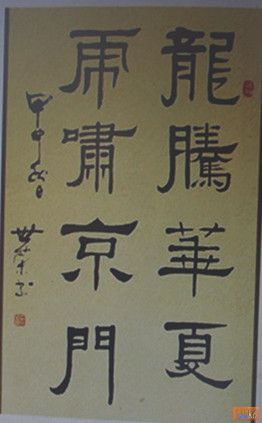 龍騰華夏
虎嘯京門
甲申